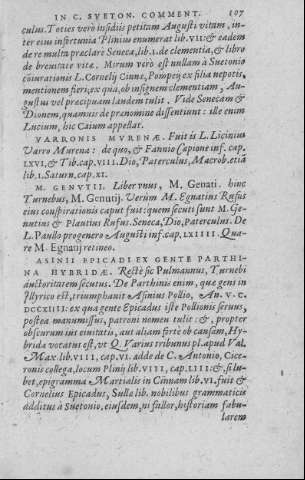 IN C. SVETON. COMMENT. 107
culus. Toties vero insidiis petitam Augusti vitam, in-
ter eius infortunia Plinius enumerat lib. VII: & eadem
de re multa præclare Seneca, lib. I. de clementia, & libro
de breuitate vitæ. Mirum verò est nullam à Suetonio
coniurationis L. Cornelij Cinnæ, Pompeij ex filia nepotis,
mentionem fieri, ex qua, ob insignem clementiam, Au-
gustus vel præcipuam laudem tulit. Vide Senecam &
Dionem, quamuis de prænomine dissentiunt: ille enim
Lucium, hic Caium appellat.
VARRONIS MVRENÆ. Fuit is L. Licinius
Varro Murena: de quo, & Fannio Cæpione inf. cap.
LXVI, & Tib. cap. VIII. Dio, Paterculus, Macrob. etiā
lib. I. Satur. cap. XI.
M. GENVTII. Liber vnus, M. Genati. hinc
Turnebus, M. Genutij. Verum M. Egnatius Rufus
eius conspirationis caput fuit: quem secuti sunt M. Ge-
nutius & Plautius Rufus. Seneca, Dio, Paterculus. De
L. Paullo progenero Augusti inf. cap. LXIIII. Qua-
re M. Egnatij retineo.
ASINII EPICADI EX GENTE PARTHI-
NA HYBRIDÆ. Rectè sic Pulmannus, Turnebi
auctoritatem secutus. De Parthinis enim, quæ gens in
Illyrico est, triumphauit Asinius Pollio, An. V. C.
DCCXIIII: ex qua gente Epicadus iste Pollionis seruus,
postea manumissus, patroni nomen tulit: &, propter
obscurum ius ciuitatis, aut aliam fortè ob causam, Hy-
brida vocatus est, vt Q. Varius tribunus pl. apud Val.
Max. lib. VIII, cap. VI. adde de C. Antonio, Cice-
ronis collega, locum Plinij lib. VIII, cap. LIII: &, si lu-
bet, epigramma Martialis in Cinnam lib. VI. fuit &
Cornelius Epicadus, Sullæ lib. nobilibus grammaticis
additus à Suetonio, eiusdem, ni fallor, historiam fabu-
larem